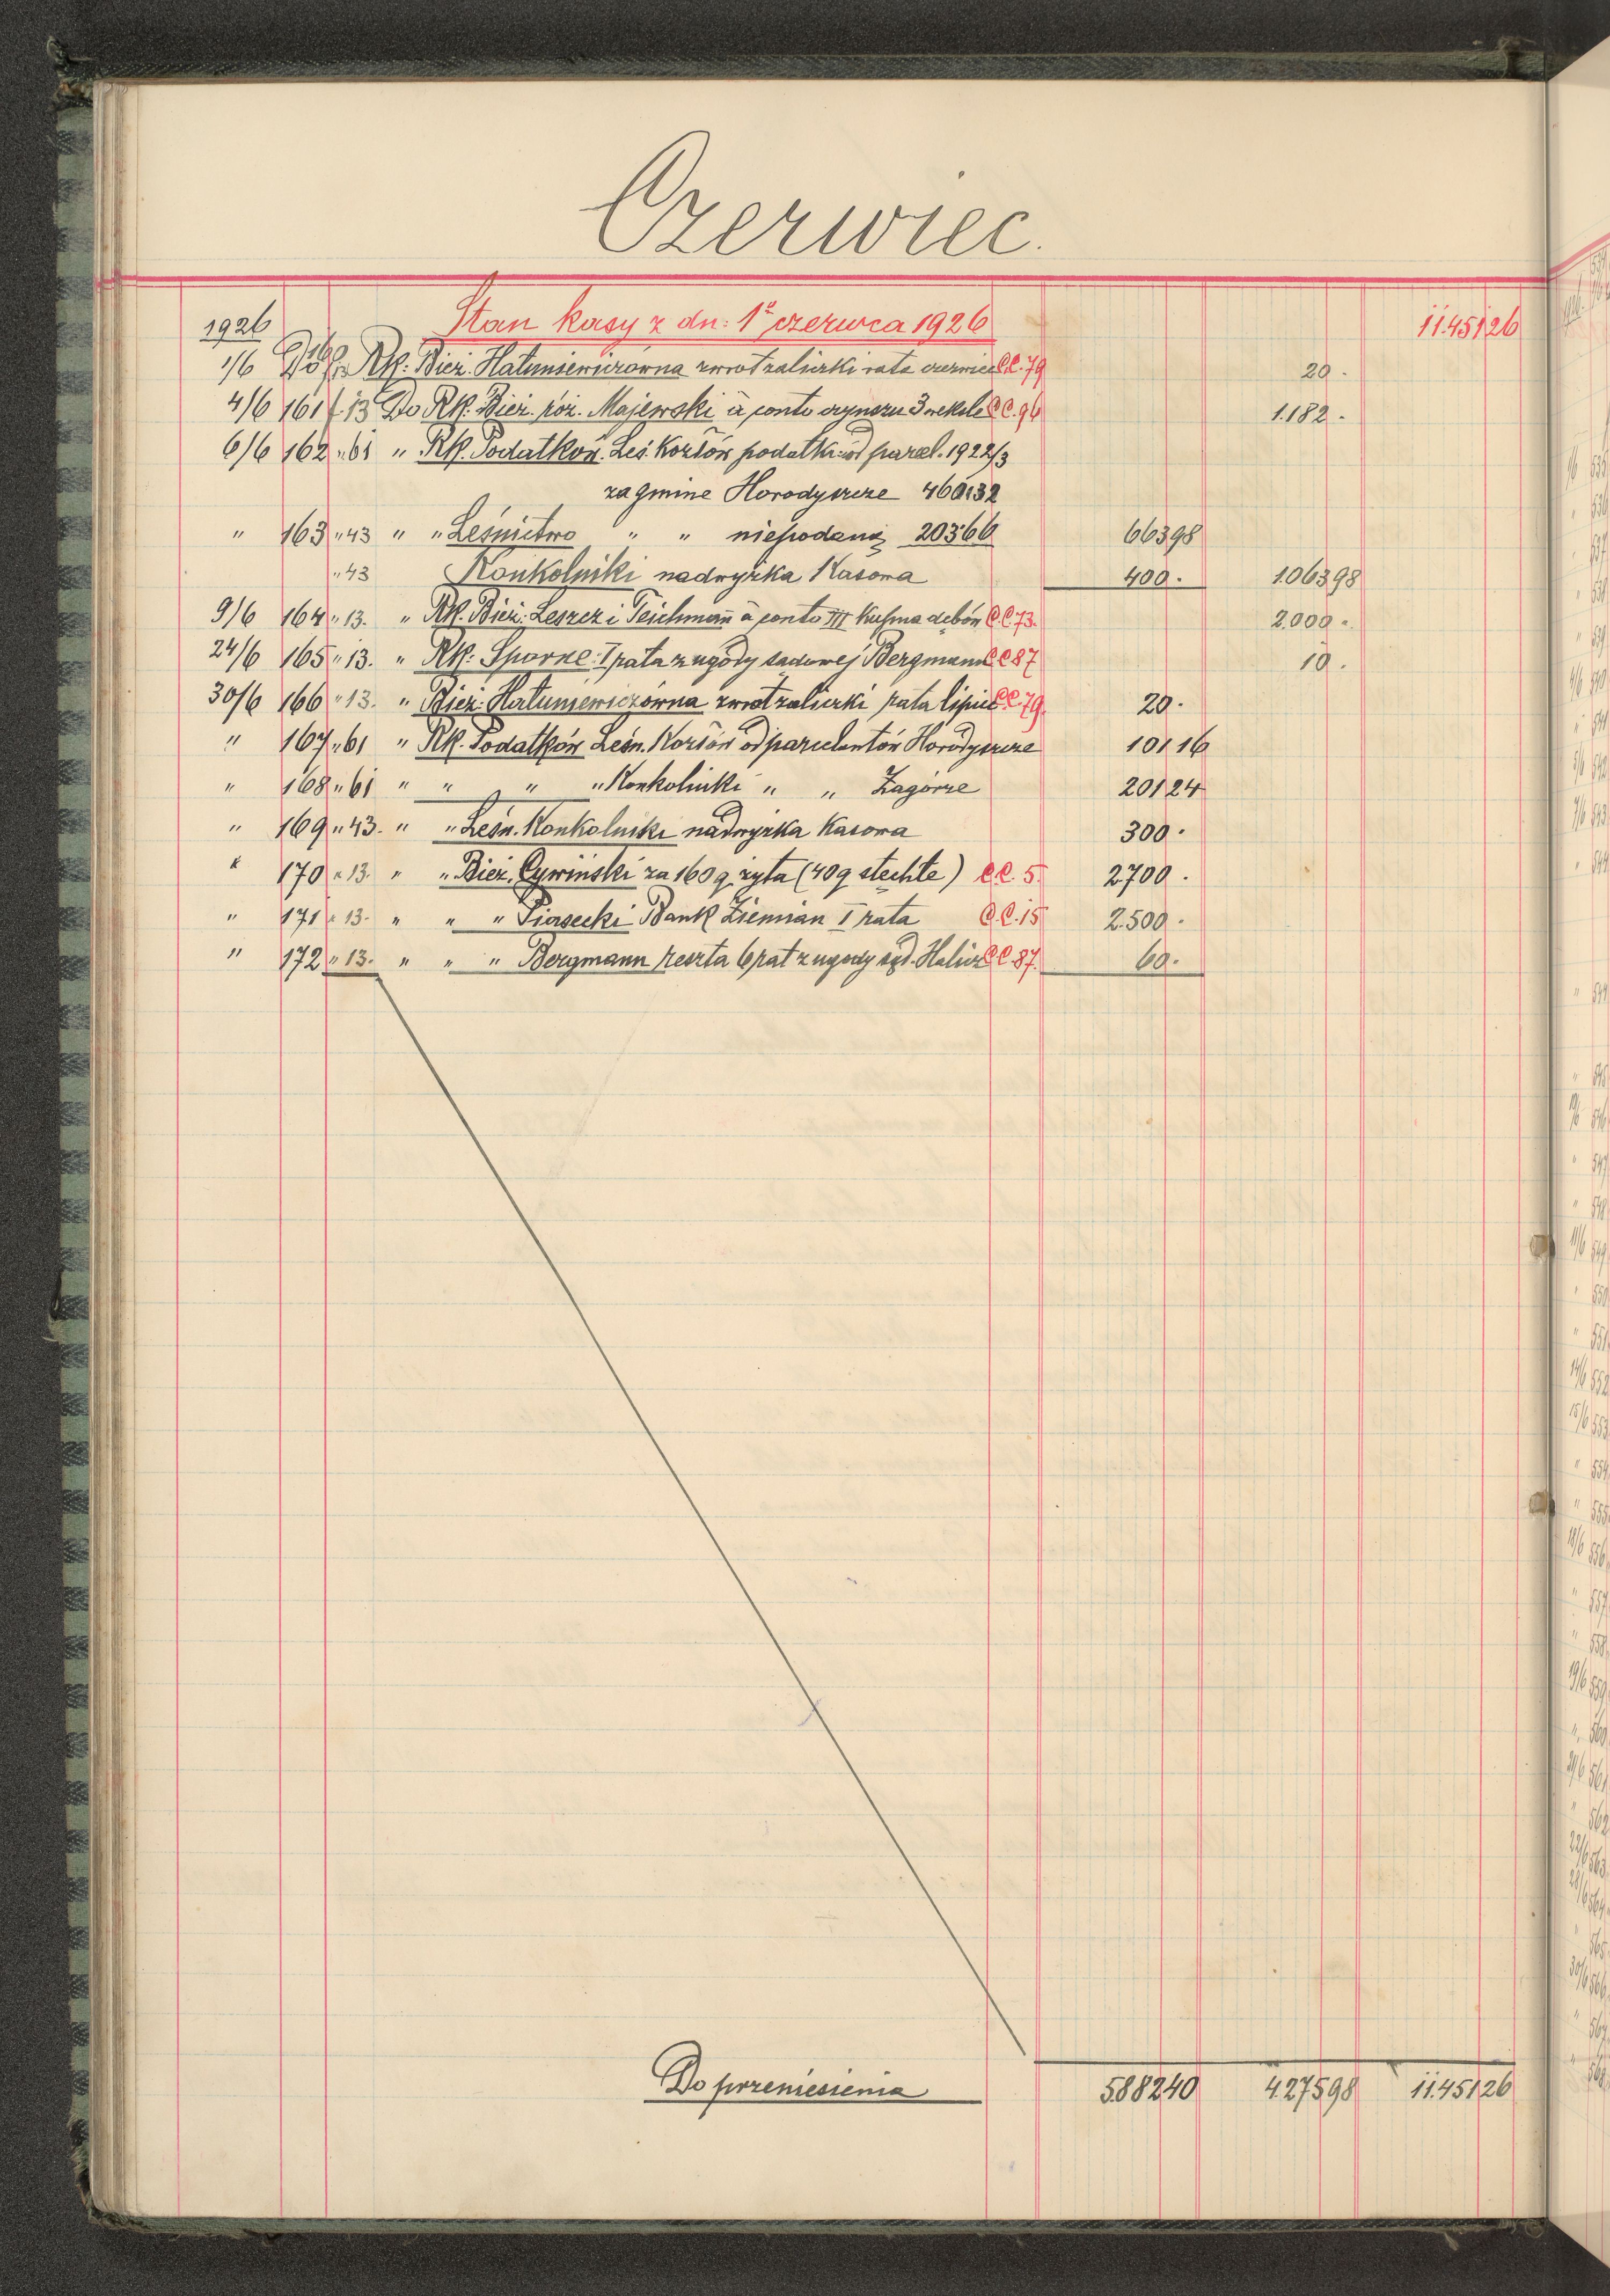 Czerwiec.
1926 Stan kasy z dn: 1º czerwca 1926 11.451 26
1/6 160 Rk: Bież. Hatuniewiczówna zwrot zaliczki rata czerwiec C.C. 79 20 -
4/6 161 f 13 Do Rk. Bież. róż. Majewski à conto czynszu 3 weksle C.C. 96 1.182 -
6/6 162 " 61 " Rk. Podatków. Leś. Korsów podatki od parcel. 1922/3
za gminę Horodyszcze 460.32
" 163 " 43 " " Leśnictwo " " niepodaną 203.66 663 98
" 43 Konkolniki nadwyżka Kasowa 400 - 1.063 98
9/6 164 " 13. " Rk. Bież. Leszcz i Teichmann à conto III kupna dębów C.C. 73. 2.000 -
24/6 165 " 13. " Rk: Sporne: I rata z ugody sądowej Bergmann C.C. 87 10 -
30/6 166 " 13. " Bież. Hatuniewiczówna zwrot zaliczki rata lipiec C.C. 79. 20 -
" 167 " 61 " Rk. Podatków Leśn. Korsów od parcelantów Horodyszcze 101 16
" 168 " 61 " " " " Konkolniki " " Zagórze 201 24
" 169 " 43. " " Leśn. Konkolniki nadwyżka Kasowa 300 -
" 170 " 13. " " Bież. Cywiński za 160 q żyta (40 q stechłe) C.C. 5. 2700 -
" 171 " 13. " " " Piasecki Bank Ziemian I rata C.C. 15 2.500 -
" 172 " 13. " " " Bergmann reszta 6 rat z ugody sąd. Halicz C.C. 87. 60 -
Do przeniesienia 5.882 40 4.275 98 11.451 26